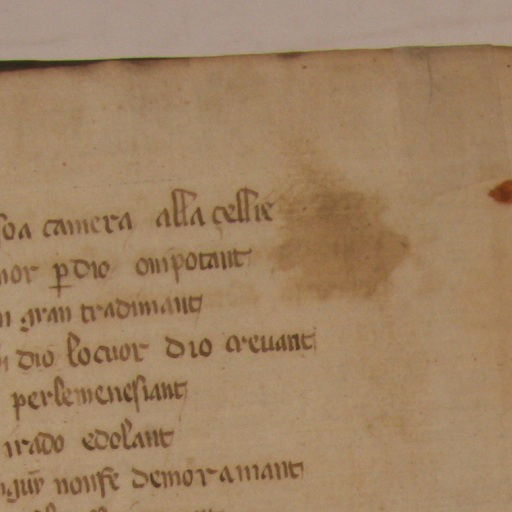 soa camera alla cellie
mor p dio omipotant
n gran tradimant
dio locuor dio creuant
perlemenesiant
irado edolant
nonfe demoramant